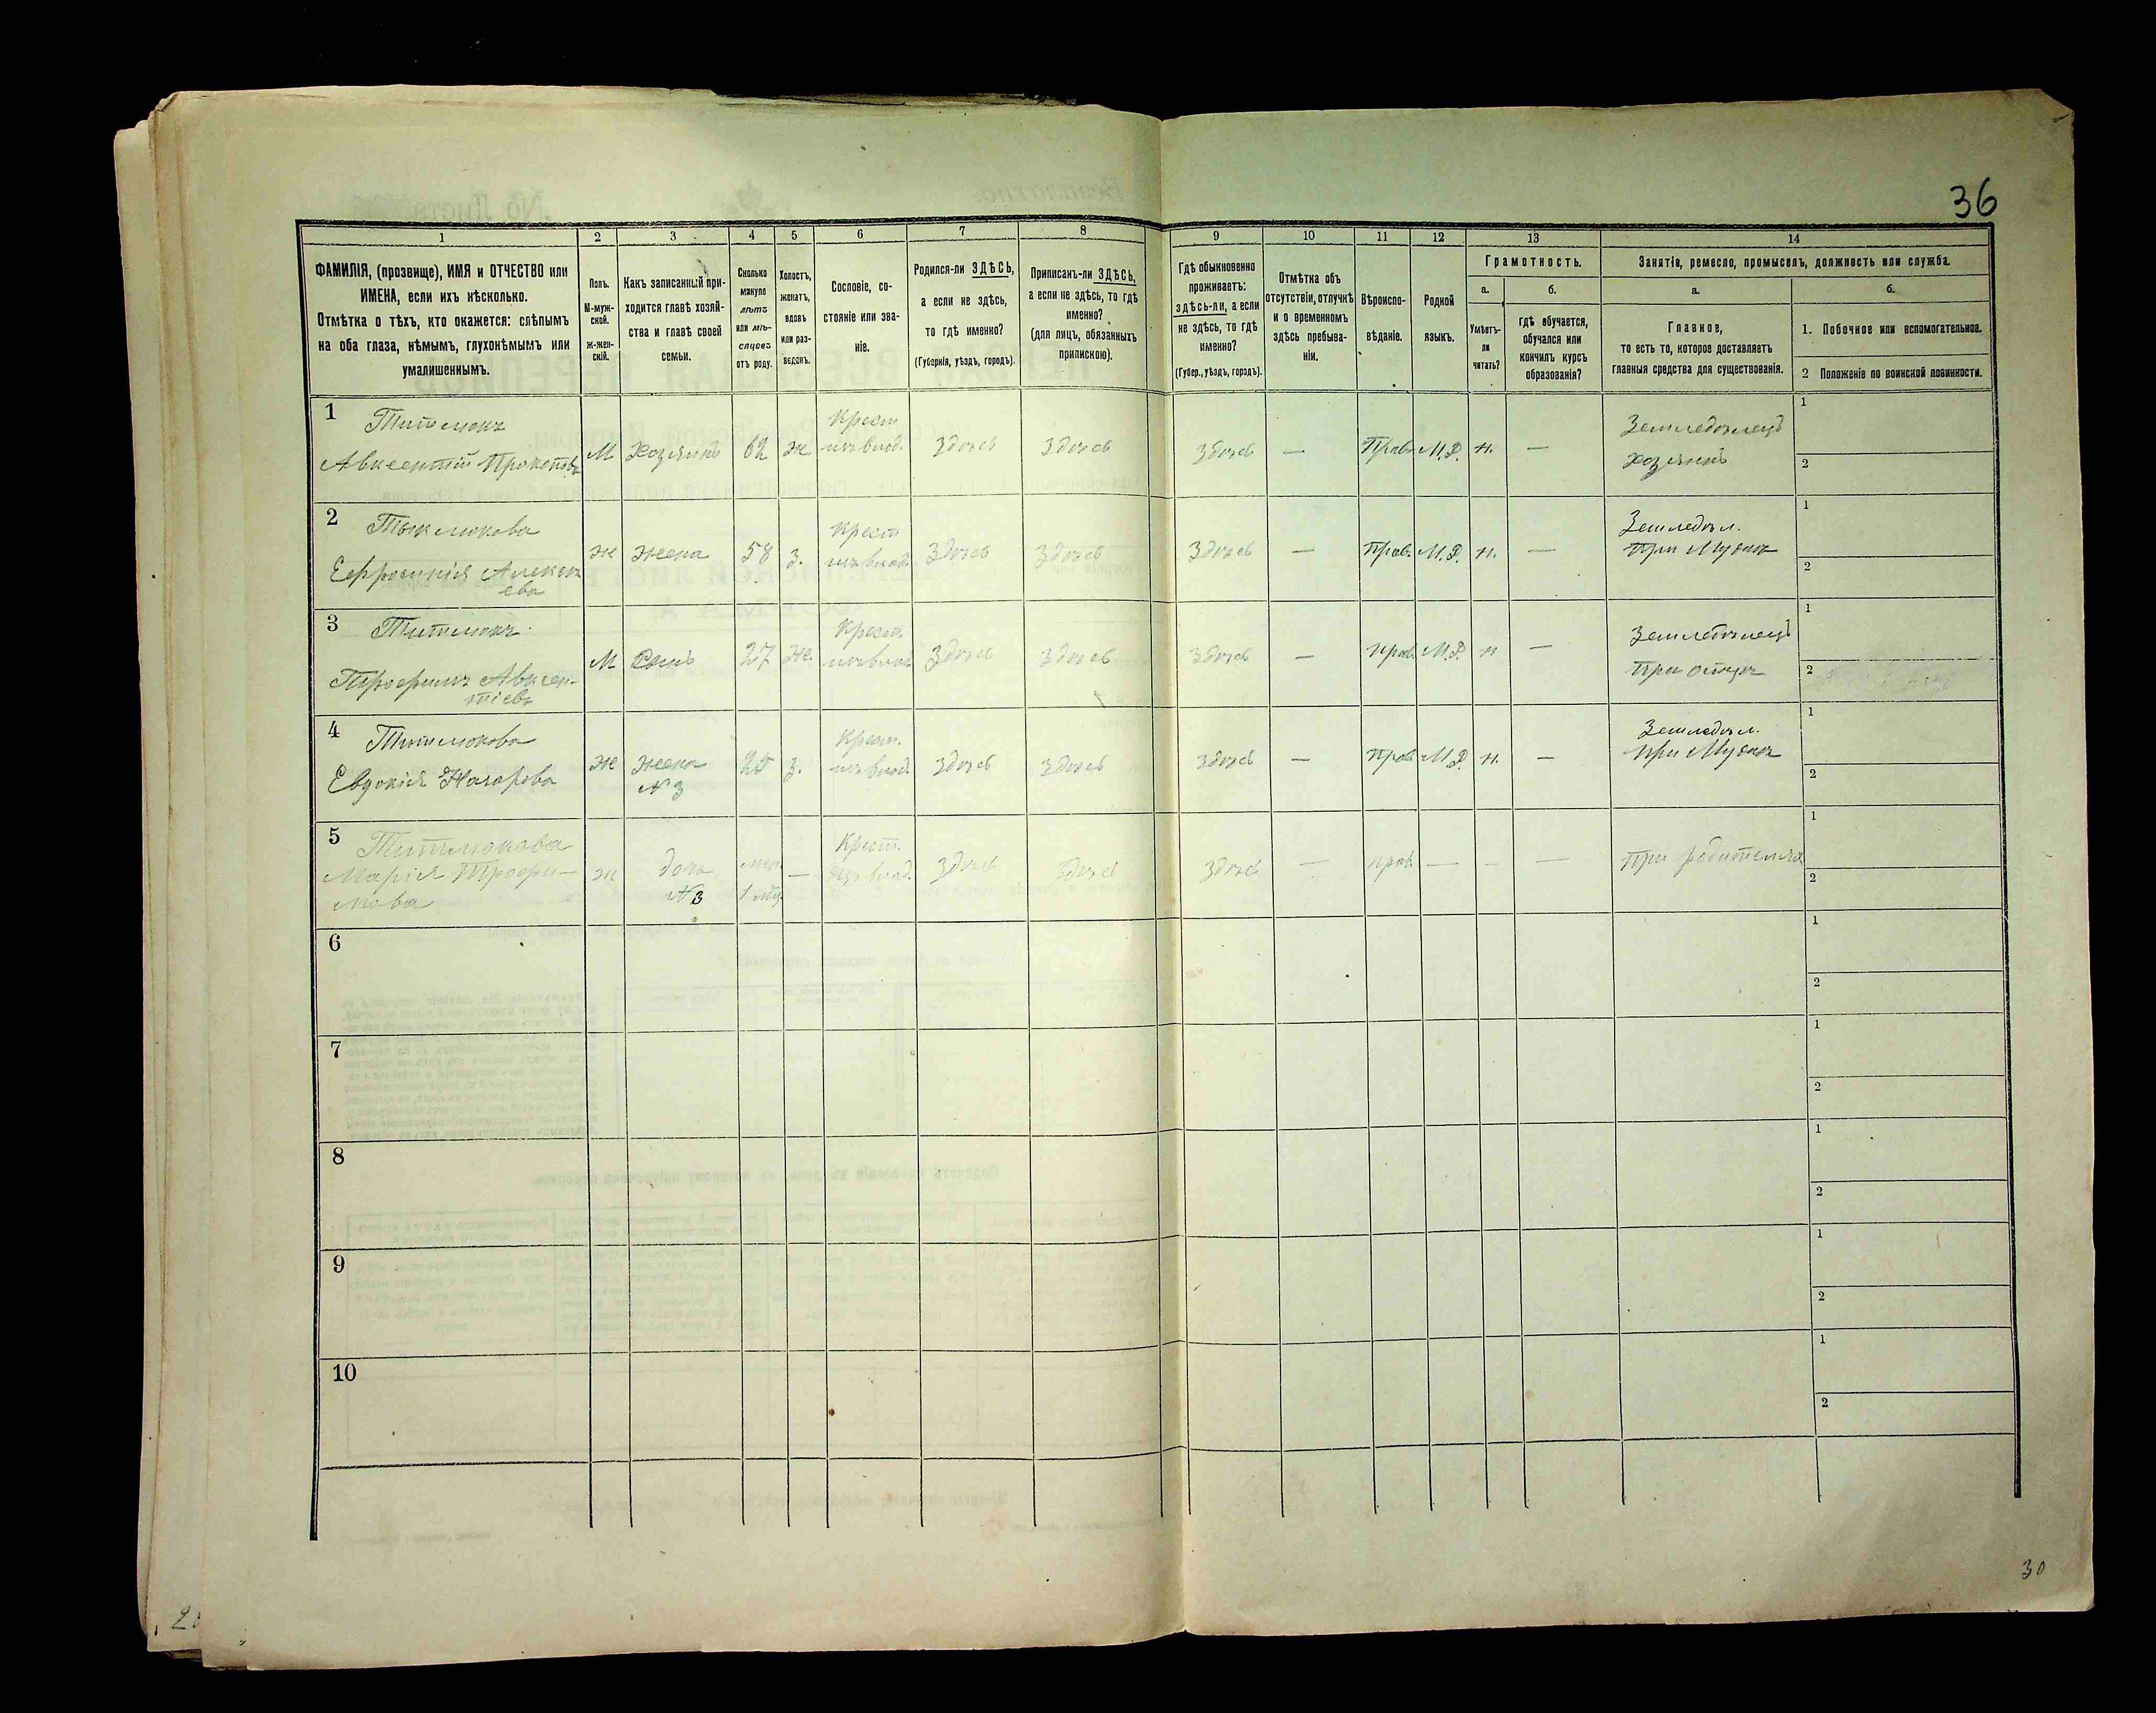 36
1 2 3 4 5 6 7 8 9 10 11 12 13 14
ФАМИЛІЯ, (прозвище), ИМЯ и ОТЧЕСТВО или
ИМЕНА, если ихъ нѣсколько.
Отмѣтка о тѣхъ, кто окажется: слѣпымъ
на оба глаза, нѣмымъ, глухонѣмымъ или
умалишеннымъ.
Полъ.
М-муж-
ской.
ж-жен-
скій.
Какъ записанный при-
ходится главѣ хозяй-
ства и главѣ своей
семьи.
Сколько
минуло
лѣтъ
или мѣ-
сяцевъ
отъ роду.
Холостъ,
женатъ,
вдовъ
или раз-
веденъ.
Сословіе, со-
стояніе или зва-
ніе.
Родился-ли ЗДѢСЬ,
а если не здѣсь,
то гдѣ именно?
(Губернія, уѣздъ, городъ).
Приписанъ-ли ЗДѢСЬ,
а если не здѣсь, то гдѣ
именно?
(для лицъ, обязанныхъ
припискою).
Гдѣ обыкновенно
проживаетъ:
здѣсь-ли, а если
не здѣсь, то гдѣ
именно?
(Губер., уѣздъ, городъ).
Отмѣтка объ
отсутствіи, отлучкѣ
и о временномъ
здѣсь пребыва-
ніи.
Вѣроиспо-
вѣданіе.
Родной
языкъ.
Грамотность.
а.
Умѣетъ-
ли
читать?
б.
гдѣ обучается,
обучался или
кончилъ курсъ
образованія?
Занятіе, ремесло, промыселъ, должность или служба.
а.
Главное,
то есть то, которое доставляетъ
главныя средства для существованія.
б.
1. Побочное или вспомогательное.
2 Положеніе по воинской повинности.
1
Авксентій
М Хозяинъ 62 ж. Крест. Здѣсь Здѣсь Здѣсь — Прав. М.Р. н. — Земледѣлецъ
хозяинъ
1
2
2
Ефросинія Алексѣ
ева
ж жена 58 з. Крест. Здѣсь Здѣсь Здѣсь — Прав. М.Р. н. — Земледѣл.
при Мужѣ
1
2
3
Трофимъ Авксен-
тіевъ
М Сынъ 27 Же. Крест. Здѣсь Здѣсь Здѣсь — прав. М.Р. н — Земледѣлецъ
При отцѣ
1
2
4
Титлюкова
Евдокія Назарова
ж жена
N 3
25 з. Крест. Здѣсь Здѣсь Здѣсь — Прав М.Р. н. — Земледѣл.
при Мужѣ
1
2
5 Титлюкова
Марія Трофи-
мова
ж дочь
N 3
— Крест. Здѣсь Здѣсь Здѣсь — прав. — — — При родителях
1
2
6
1
2
7
1
2
8
1
2
9
1
2
10
1
2
30